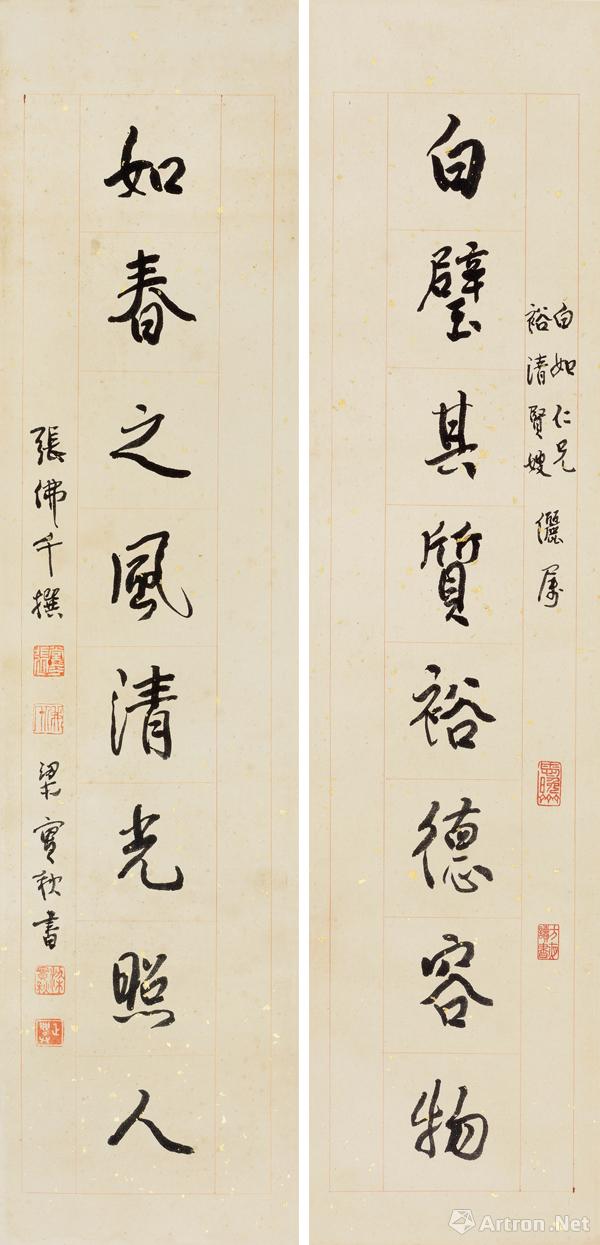 白如仁兄
裕清賢嫂 儷屬
白璧其質裕德容物
如春之風清光照人
張佛千撰
梁實秋書
Artron.Net